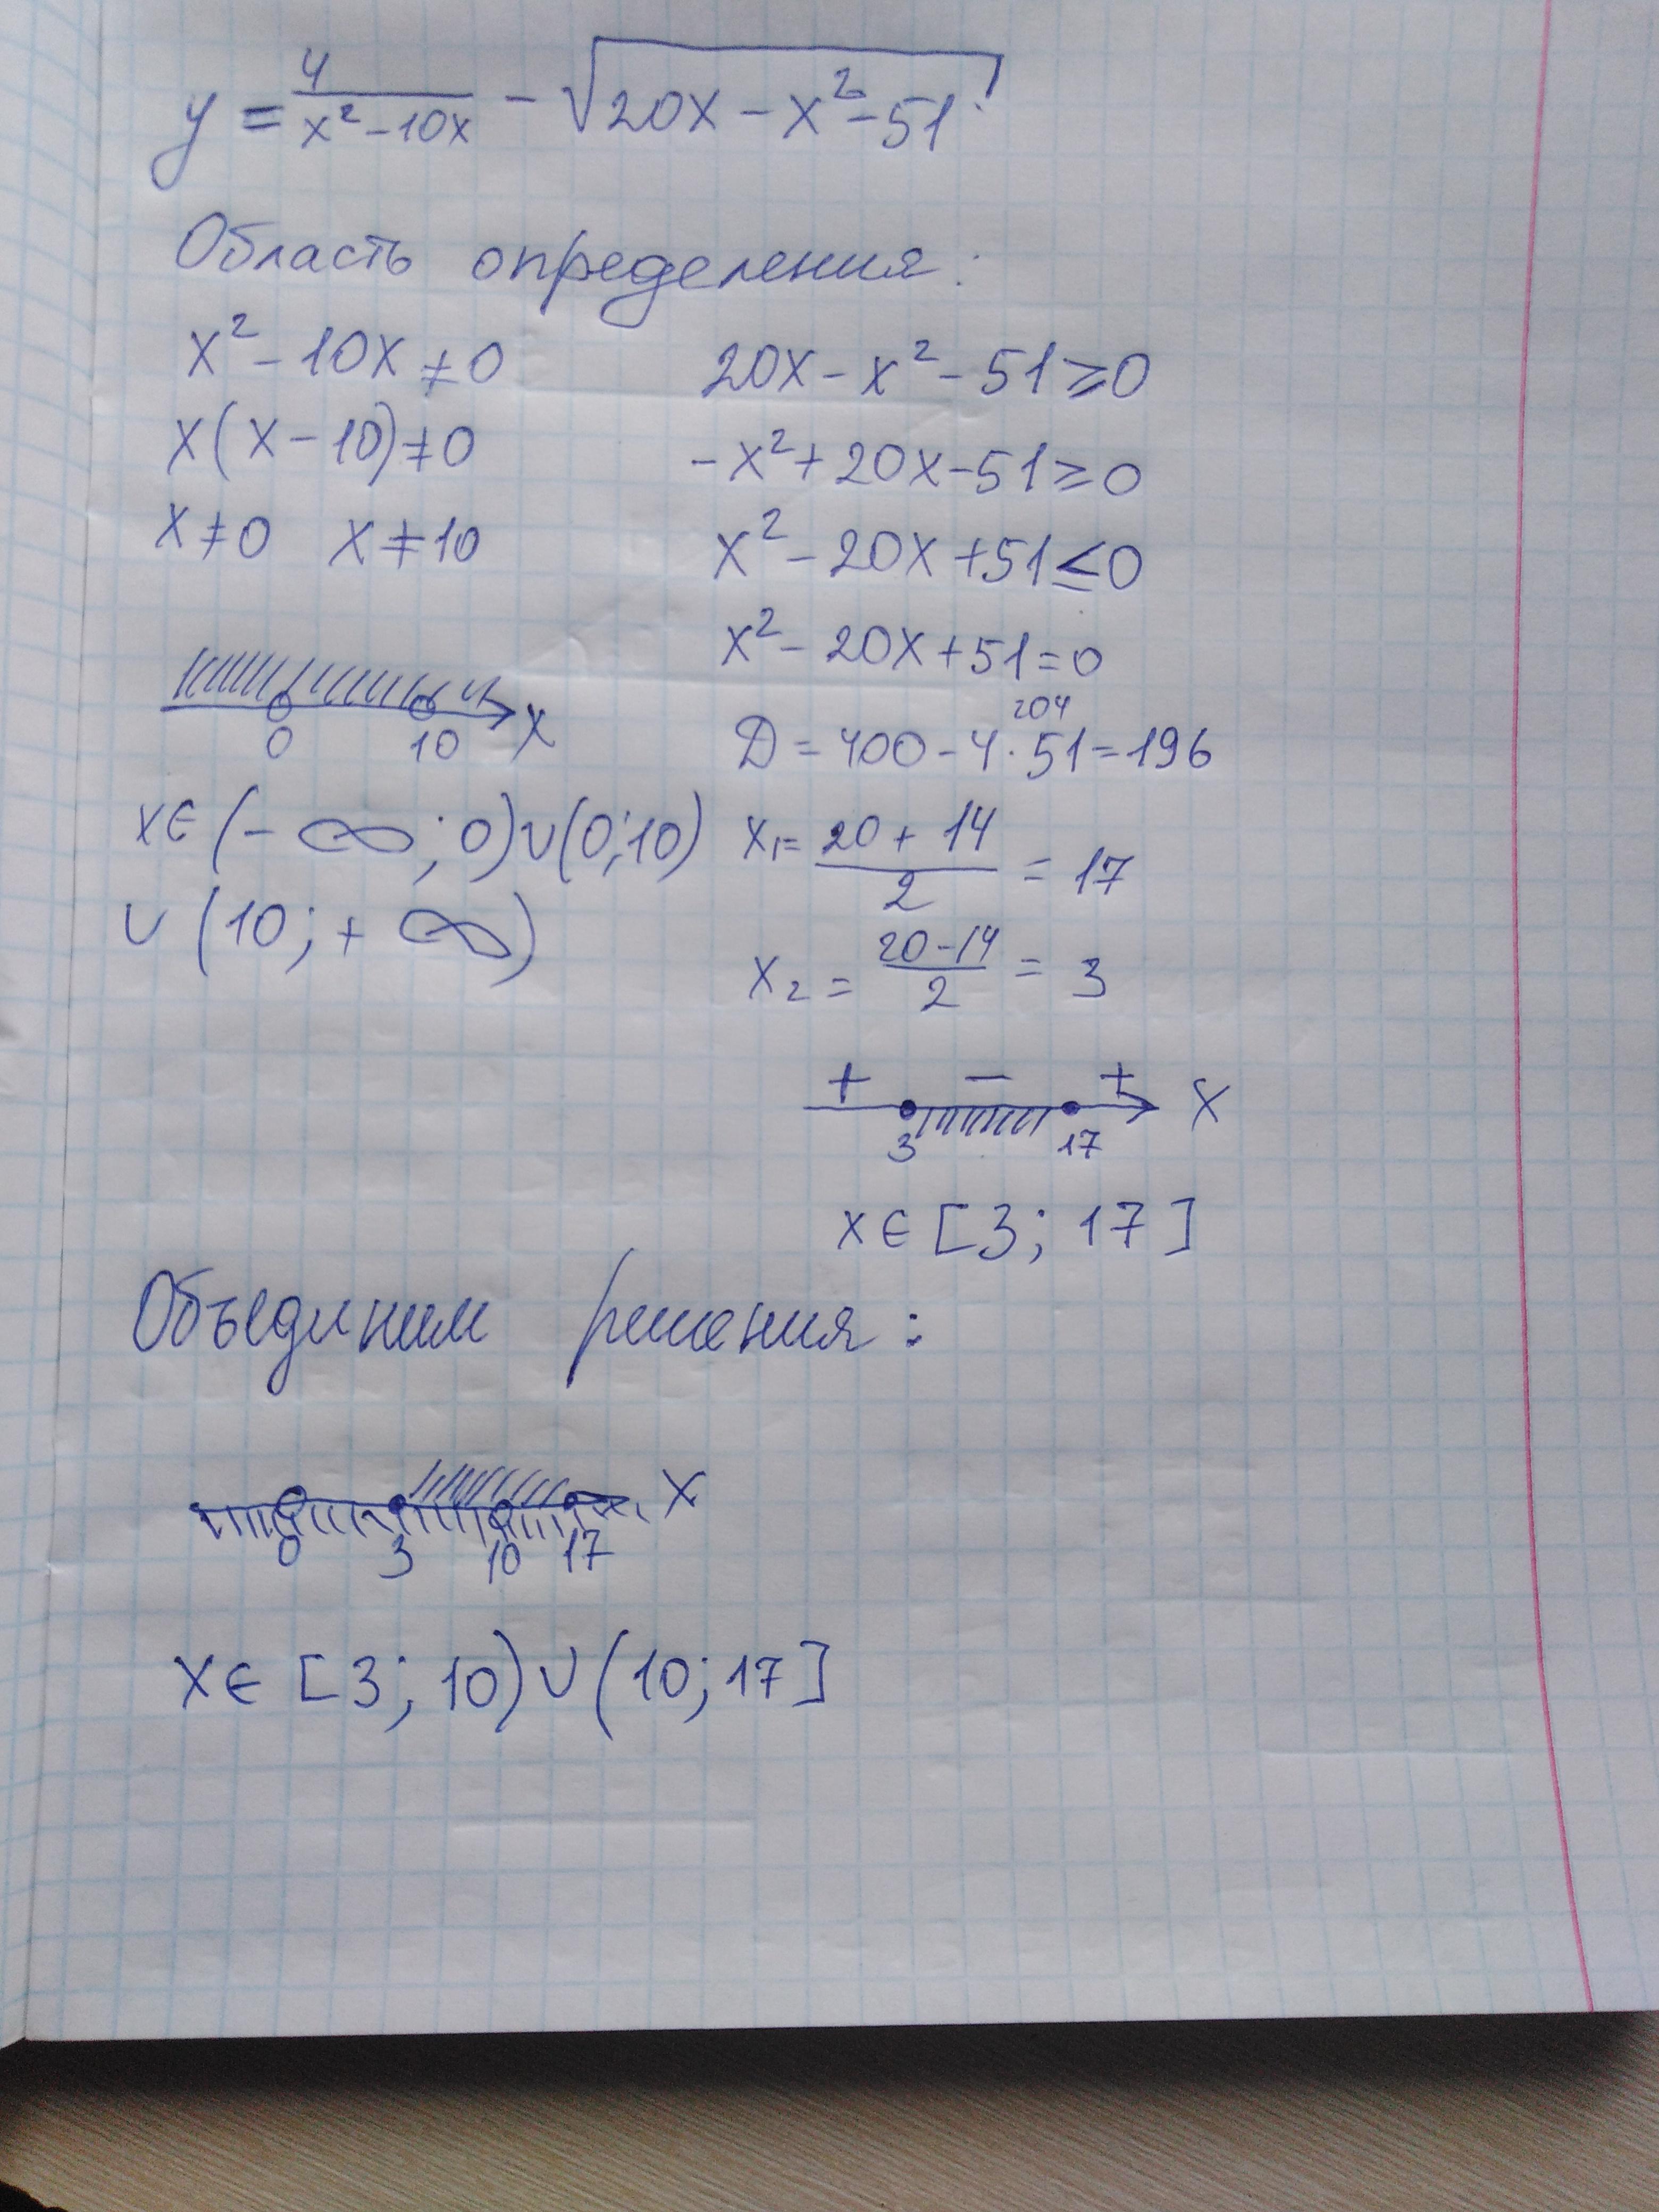 y = 4/(x² - 10x) - √(20x - x² - 51)
Область определения:
x² - 10x ≠ 0
x(x - 10) ≠ 0
x ≠ 0 x ≠ 10
0 10 x
x ∈ (-∞; 0) ∪ (0; 10)
∪ (10; + ∞)
20x - x² - 51 ≥ 0
-x² + 20x - 51 ≥ 0
x² - 20x + 51 ≤ 0
x² - 20x + 51 = 0
204
D = 400 - 4 · 51 = 196
x₁ = (20 + 14)/2 = 17
x₂ = (20 - 14)/2 = 3
+ - + x
3 17
x ∈ [3; 17]
Объединим решения:
x
0 3 10 17
x ∈ [3; 10) ∪ (10; 17]